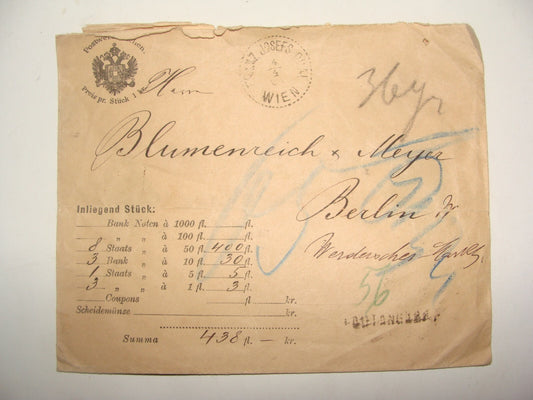 Preis pr. Stück 1
WIEN
36 gr
Herrn
Blumenreich & Meyer
Berlin
Inliegend Stück:
Bank Noten à 1000 fl. fl.
„ „ à 100 fl. fl.
8 Staats „ à 50 fl. 400 fl.
3 Bank „ à 10 fl. 30 fl.
1 Staats „ à 5 fl. 5 fl.
3 „ „ à 1 fl. 3 fl.
Coupons fl. kr.
Scheidemünze fl. kr.
Summa 438 fl. — kr.
56